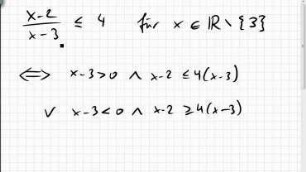 (x-2)/(x-3) ≤ 4 für x ∈ ℝ \ {3}
⟺ x-3>0 ∧ x-2 ≤ 4(x-3)
∨ x-3<0 ∧ x-2 ≥ 4(x-3)